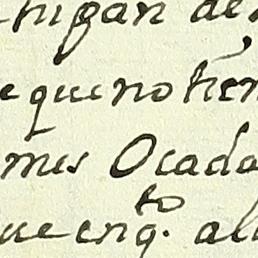 higan de
e que no tien
mes Ocada
ue enq.to al